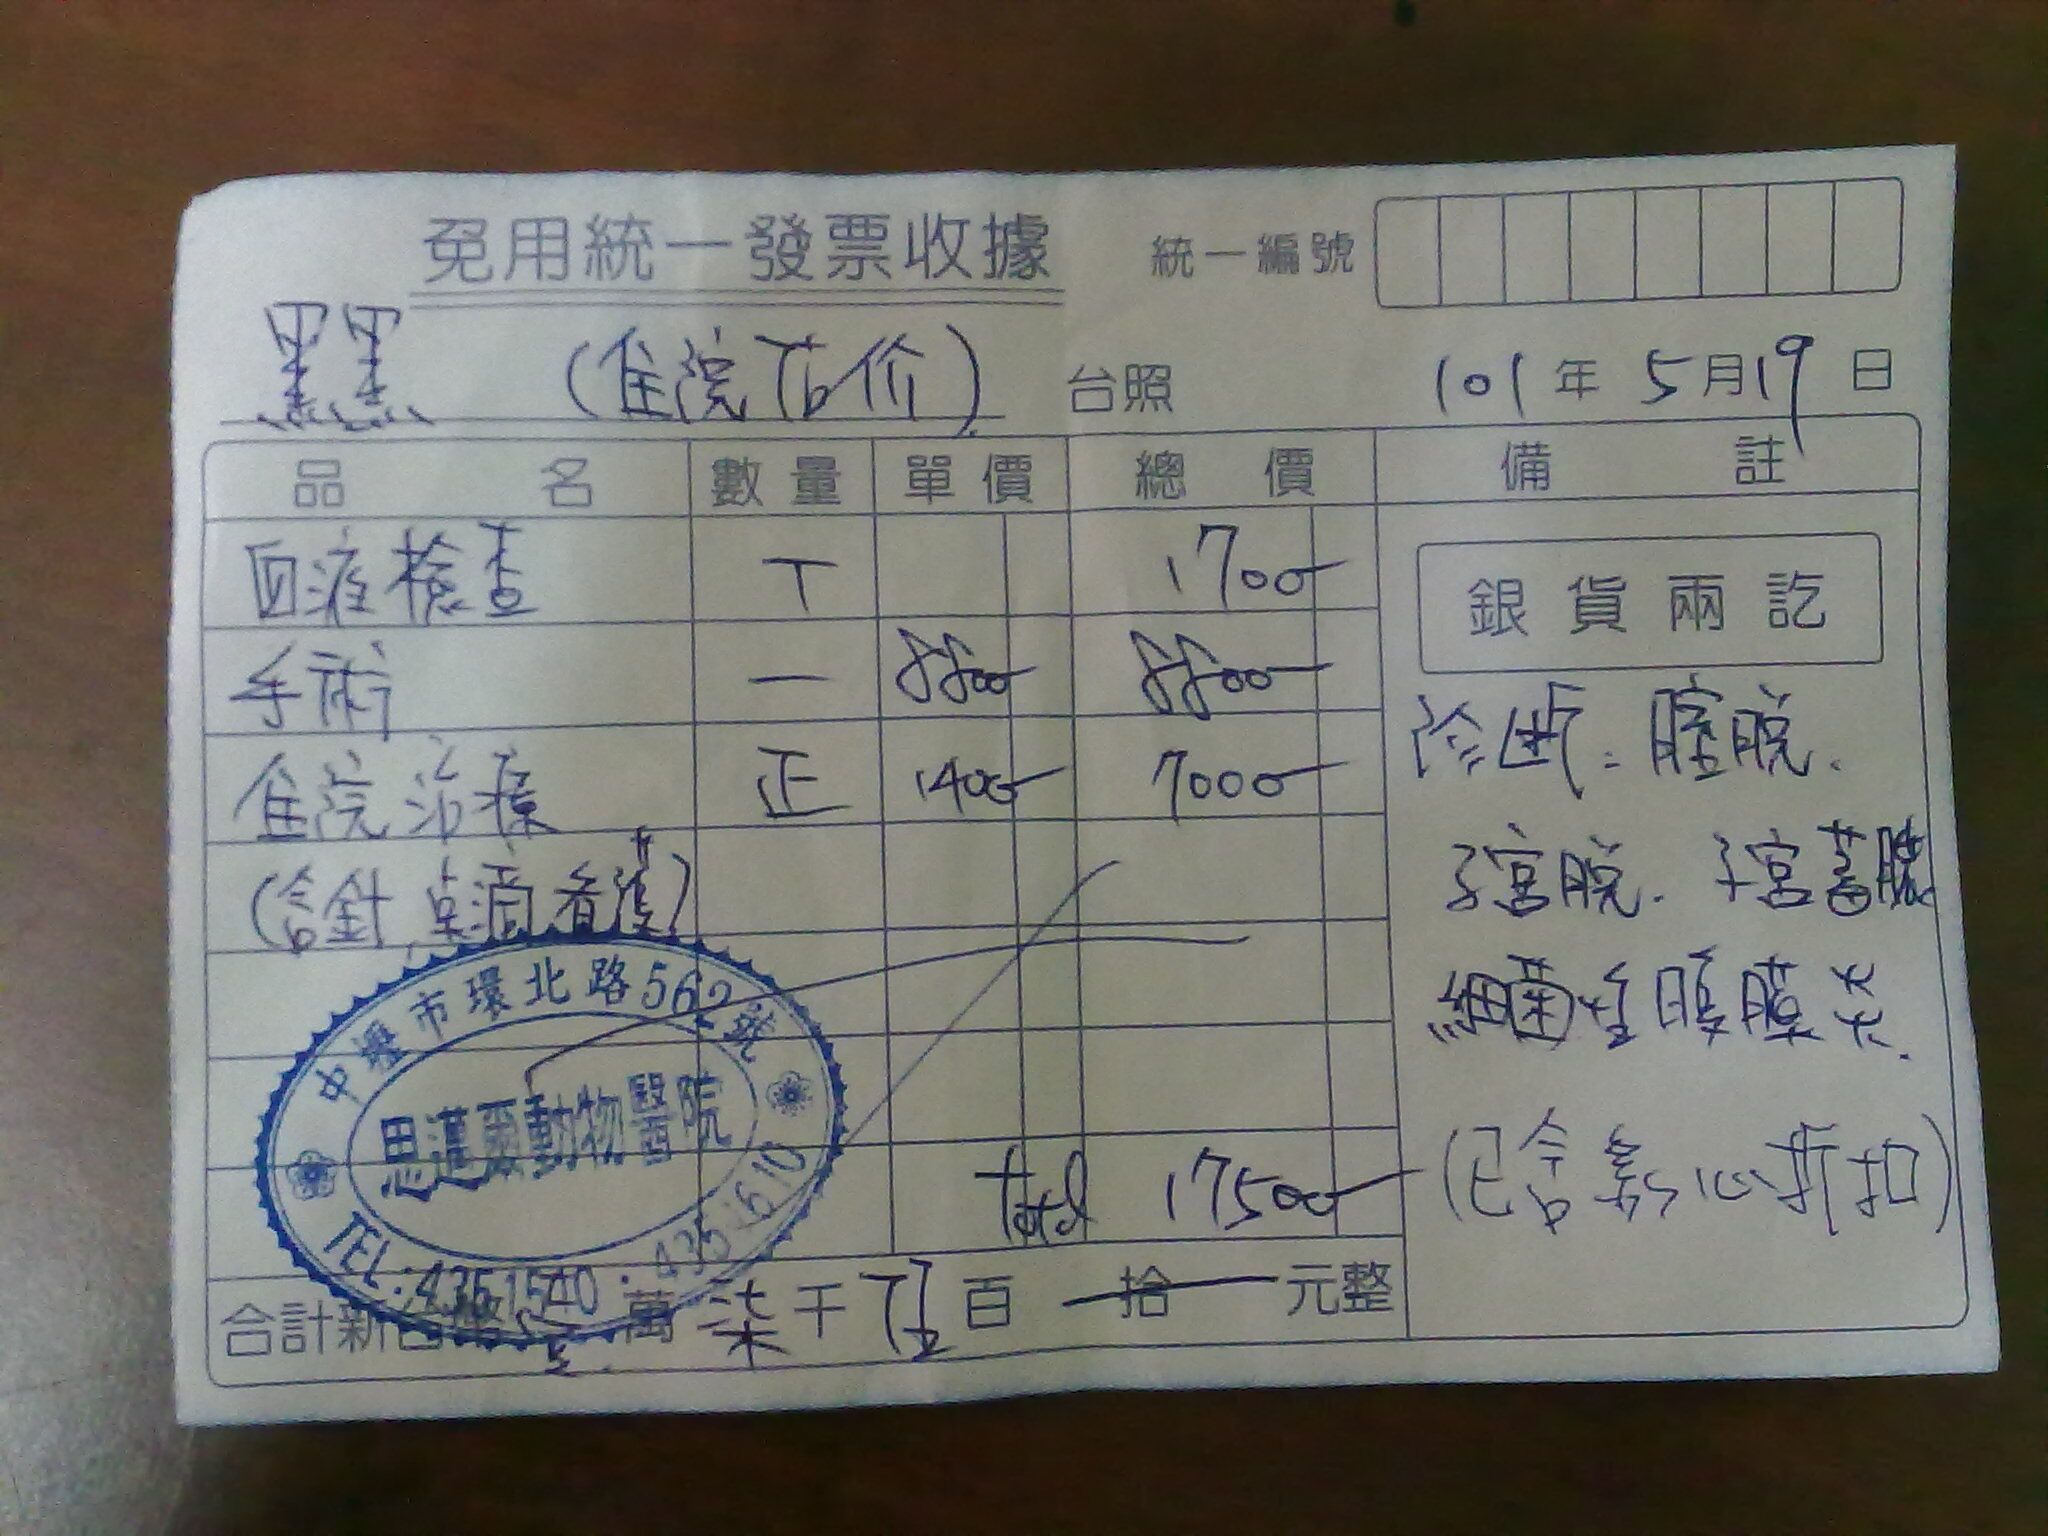 免用統一發票收據 統一編號
黑黑 (住院估价) 台照 101年5月19日
品名 數量 單價 總價 備註
血液檢查 一 1700
手術 一 8800 8800
住院治療 正 1400 7000
(含針,点滴,看護)
total 17500
合計新台幣壹萬柒千伍百拾元整
銀貨兩訖
診断:膣脱.
子宮脱.子宮蓄膿
細菌性腹膜炎.
(已含愛心折扣)
中壢市環北路562號
思邁爾動物醫院
TEL:4351540·4351610